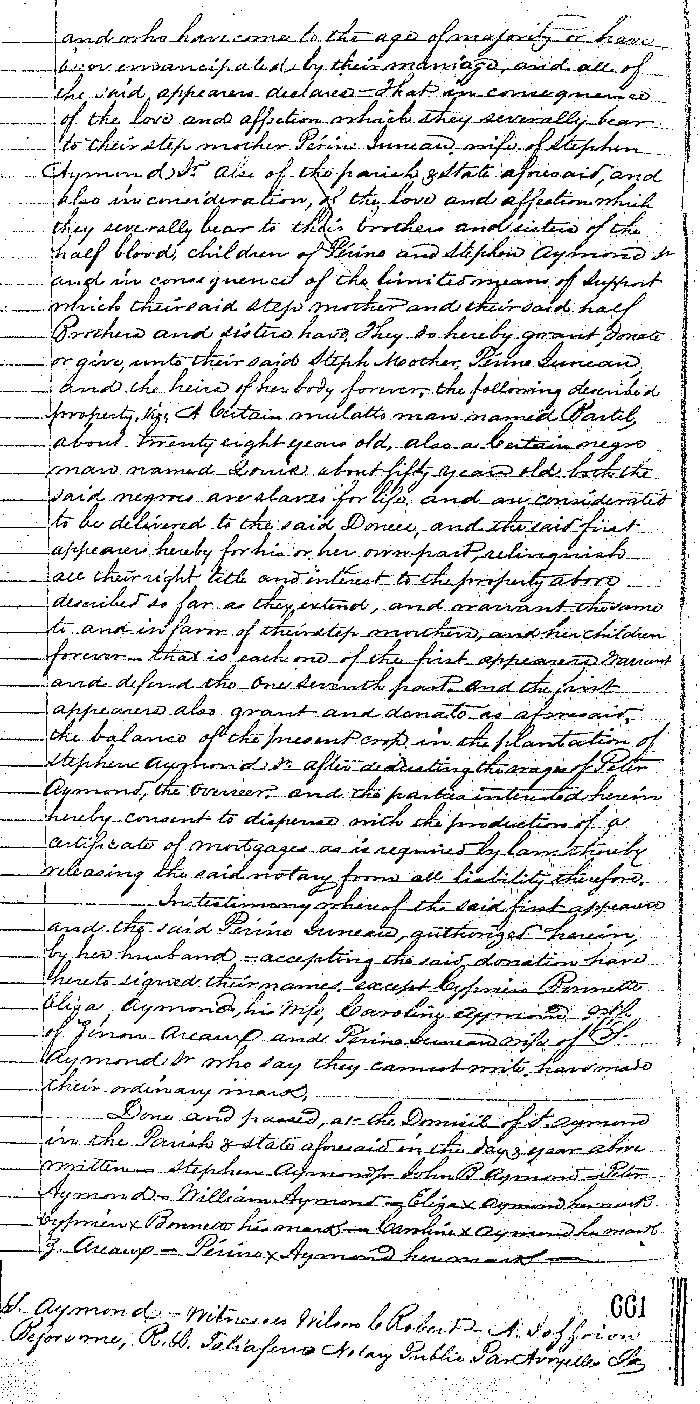 and who have come to the age of majority or have
been emancipated by their marriage, and all of
the said appearers declare - That in consequence
of the love and affection which they severally bear
to their step mother Perine Juneau wife of Stephen
Aymond Sr. Also of the parish & state aforesaid, and
also in consideration, of the love and affection which
they severally bear to their brothers and sisters of the
half blood, children of Perine and Stephen Aymond Sr
and in consequence of the limited means of support
which their said step mother and their said half
Brothers and sisters have, They do hereby grant, Donate
or give, unto their said Steph Mother, Perine Juneau,
and the heirs of her body forever, the following described
property, Viz, A Certain mulatto man named Bartel,
about twenty eight years old, also a Certain negro
man named Louis about fifty years old both the
said negroes are slaves for life and are considerated
to be delivered to the said Donee, and the said first
appearers hereby for his or her own part, relinquish
all their right title and interest to the property above
described so far as they extend, and warrant the same
to and in favor of their step mother, and her children
forever - that is each one of the first appearers Warrant
and defend the One Seventh part. and the first
appearers also grant and donate as aforesaid,
the balance of the present crop in the plantation of
Stephen Aymond Sr after deducting the wages of Peter
Aymond, the Overseer. and the parties interested herein
hereby consent to dispense with the production of a
certificate of mortgages as is required by law thereby
releasing the said notary from all liability therefore.
In testimony whereof the said first appearers
and the said Perine Juneau, authorized herein,
by her husband - accepting the said donation have
hereto signed their names except Cyprien Bonnette
Eliza Aymond, his Wife, Caroline Aymond wife
of Zenon Areaux and Perine Juneau wife of S.
Aymond Sr who say they cannot write have made
their ordinary mark,
Done and passed, at the Domicil of S. Aymond
in the Parish & state aforesaid in the day & year above
written - Stephen Aymond Jr John B Aymond - Peter
Aymond - William Aymond - Eliza x Aymond her mark
Cyprien x Bonnett his mark - Caroline x Aymond her mark
Z. Areaux - Perine x Aymond her mark -
661
S. Aymond - Witnesses Wilson C Robert - A. Joffrion
Before me, R. D. Notary Public Par Avoyelles La